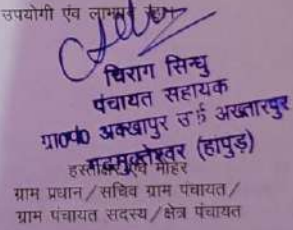 उपयोगी एंव लाभप्रद
चिराग सिन्धु
पंचायत सहायक
ग्रा०पं० अक्खापुर उर्फ अख्तारपुर
गढ़मुक्तेश्वर (हापुड़)
हस्ताक्षर एंव मोहर
ग्राम प्रधान/सचिव ग्राम पंचायत/
ग्राम पंचायत सदस्य/क्षेत्र पंचायत